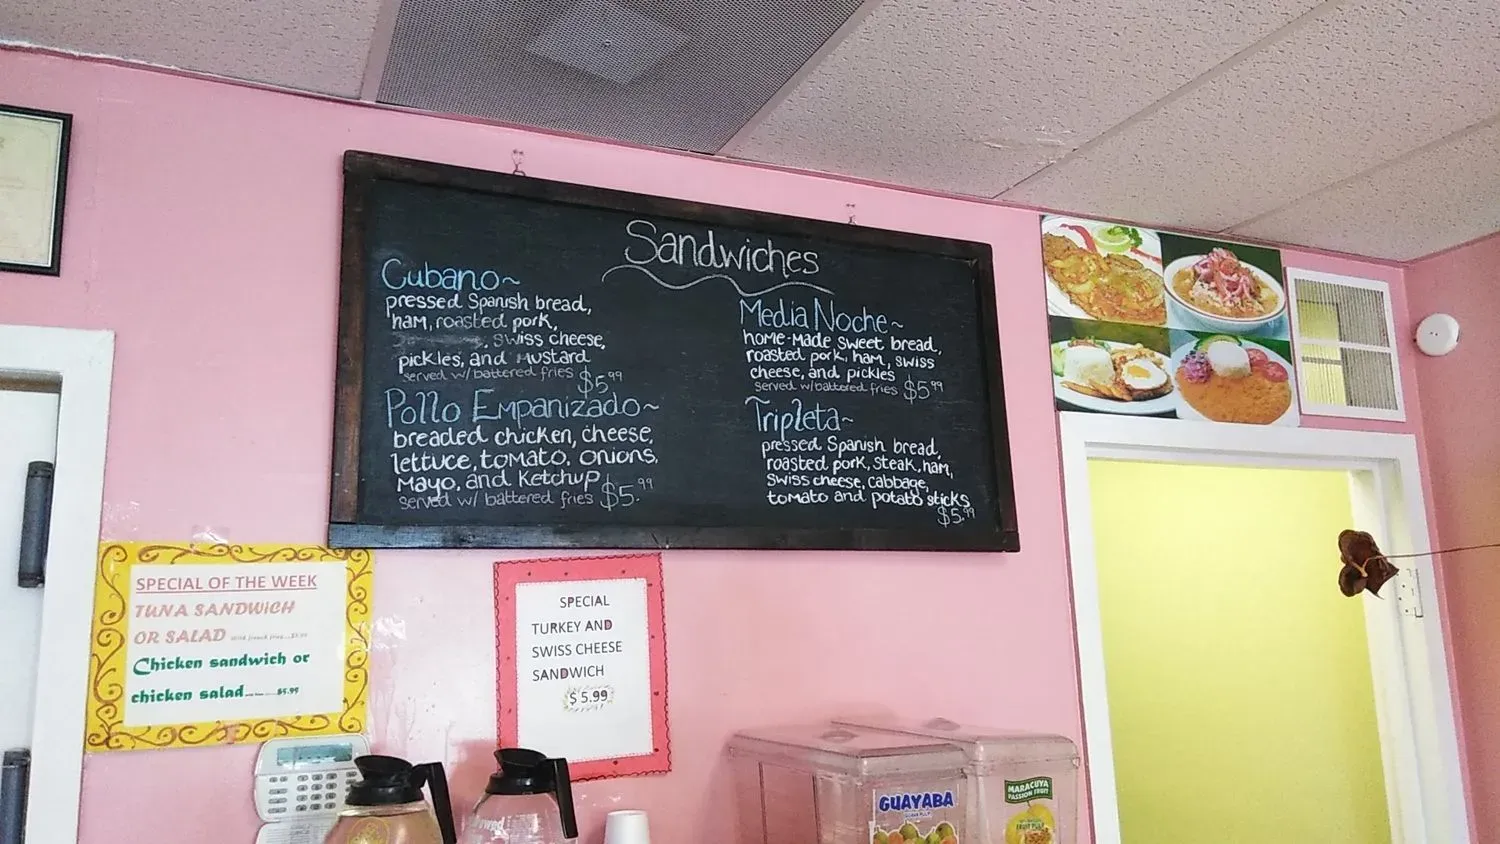 Sandwiches
Cubano~
pressed Spanish bread,
ham, roasted pork,
, swiss cheese,
pickles, and mustard
served w/ battered fries $5.99
Pollo Empanizado~
breaded chicken, cheese,
lettuce, tomato, onions,
Mayo, and Ketchup
served w/ battered fries $5.99
Media Noche~
home-made sweet bread,
roasted pork, ham, swiss
cheese, and pickles
served w/ battered fries $5.99
Tripleta~
pressed Spanish bread,
roasted pork, steak, ham,
swiss cheese, cabbage,
tomato and potato sticks
$5.99
SPECIAL OF THE WEEK
TUNA SANDWICH
OR SALAD
Chicken sandwich or
chicken salad $5.99
SPECIAL
TURKEY AND
SWISS CHEESE
SANDWICH
$ 5.99
GUAYABA
MARACUYA
PASSION FRUIT